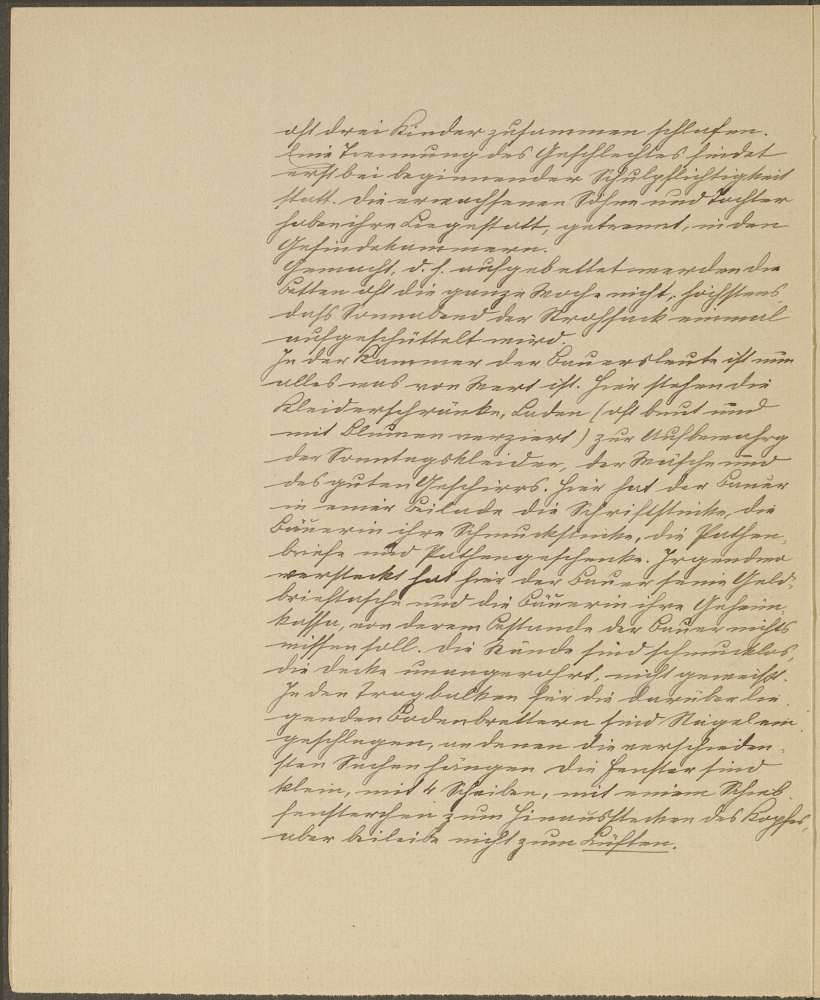 oft drei Kinder zusammen schlafen.
Eine Trennung des Geschlechtes findet
erst bei beginnender Schulpflichtigkeit
statt. Die erwachsenen Söhne und Töchter
haben ihre Liegestatt, getrennt, in den
Gesindekammern.
Gemacht, d. h. aufgebettet werden die
Betten oft die ganze Woche nicht, höchstens,
dass Sonnabend der Strohsack einmal
aufgeschüttelt wird.
In der Kammer der Bauersleute ist nun
alles was von Wert ist. Hier stehen die
Kleiderschränke, Laden (oft bunt und
mit Blumen verziert) zur Aufbewahrg
der Sonntagskleider, der Wäsche und
des guten Geschirrs. Hier hat der Bauer
in einer Beilade die Schriftstücke, die
Bäuerin ihre Schmuckstücke, die Pathen-
briefe und Pathengeschenke. Irgendwo
versteckt hat hier der Bauer seine Geld-
brieftasche und die Bäuerin ihre Geheim-
kassa, von derem Bestande der Bauer nichts
wissen soll. Die Wände sind schmucklos,
die Decke unangerohrt, nicht geweißt.
In den Tragbalken für die darüber lie-
genden Bodenbrettern sind Nägel ein-
geschlagen, an denen die verschieden-
sten Sachen hängen. Die Fenster sind
klein, mit 4 Scheiben, mit einem Schieb-
fensterchen zum Hinausstecken des Kopfes,
aber beileibe nicht zum Lüften.